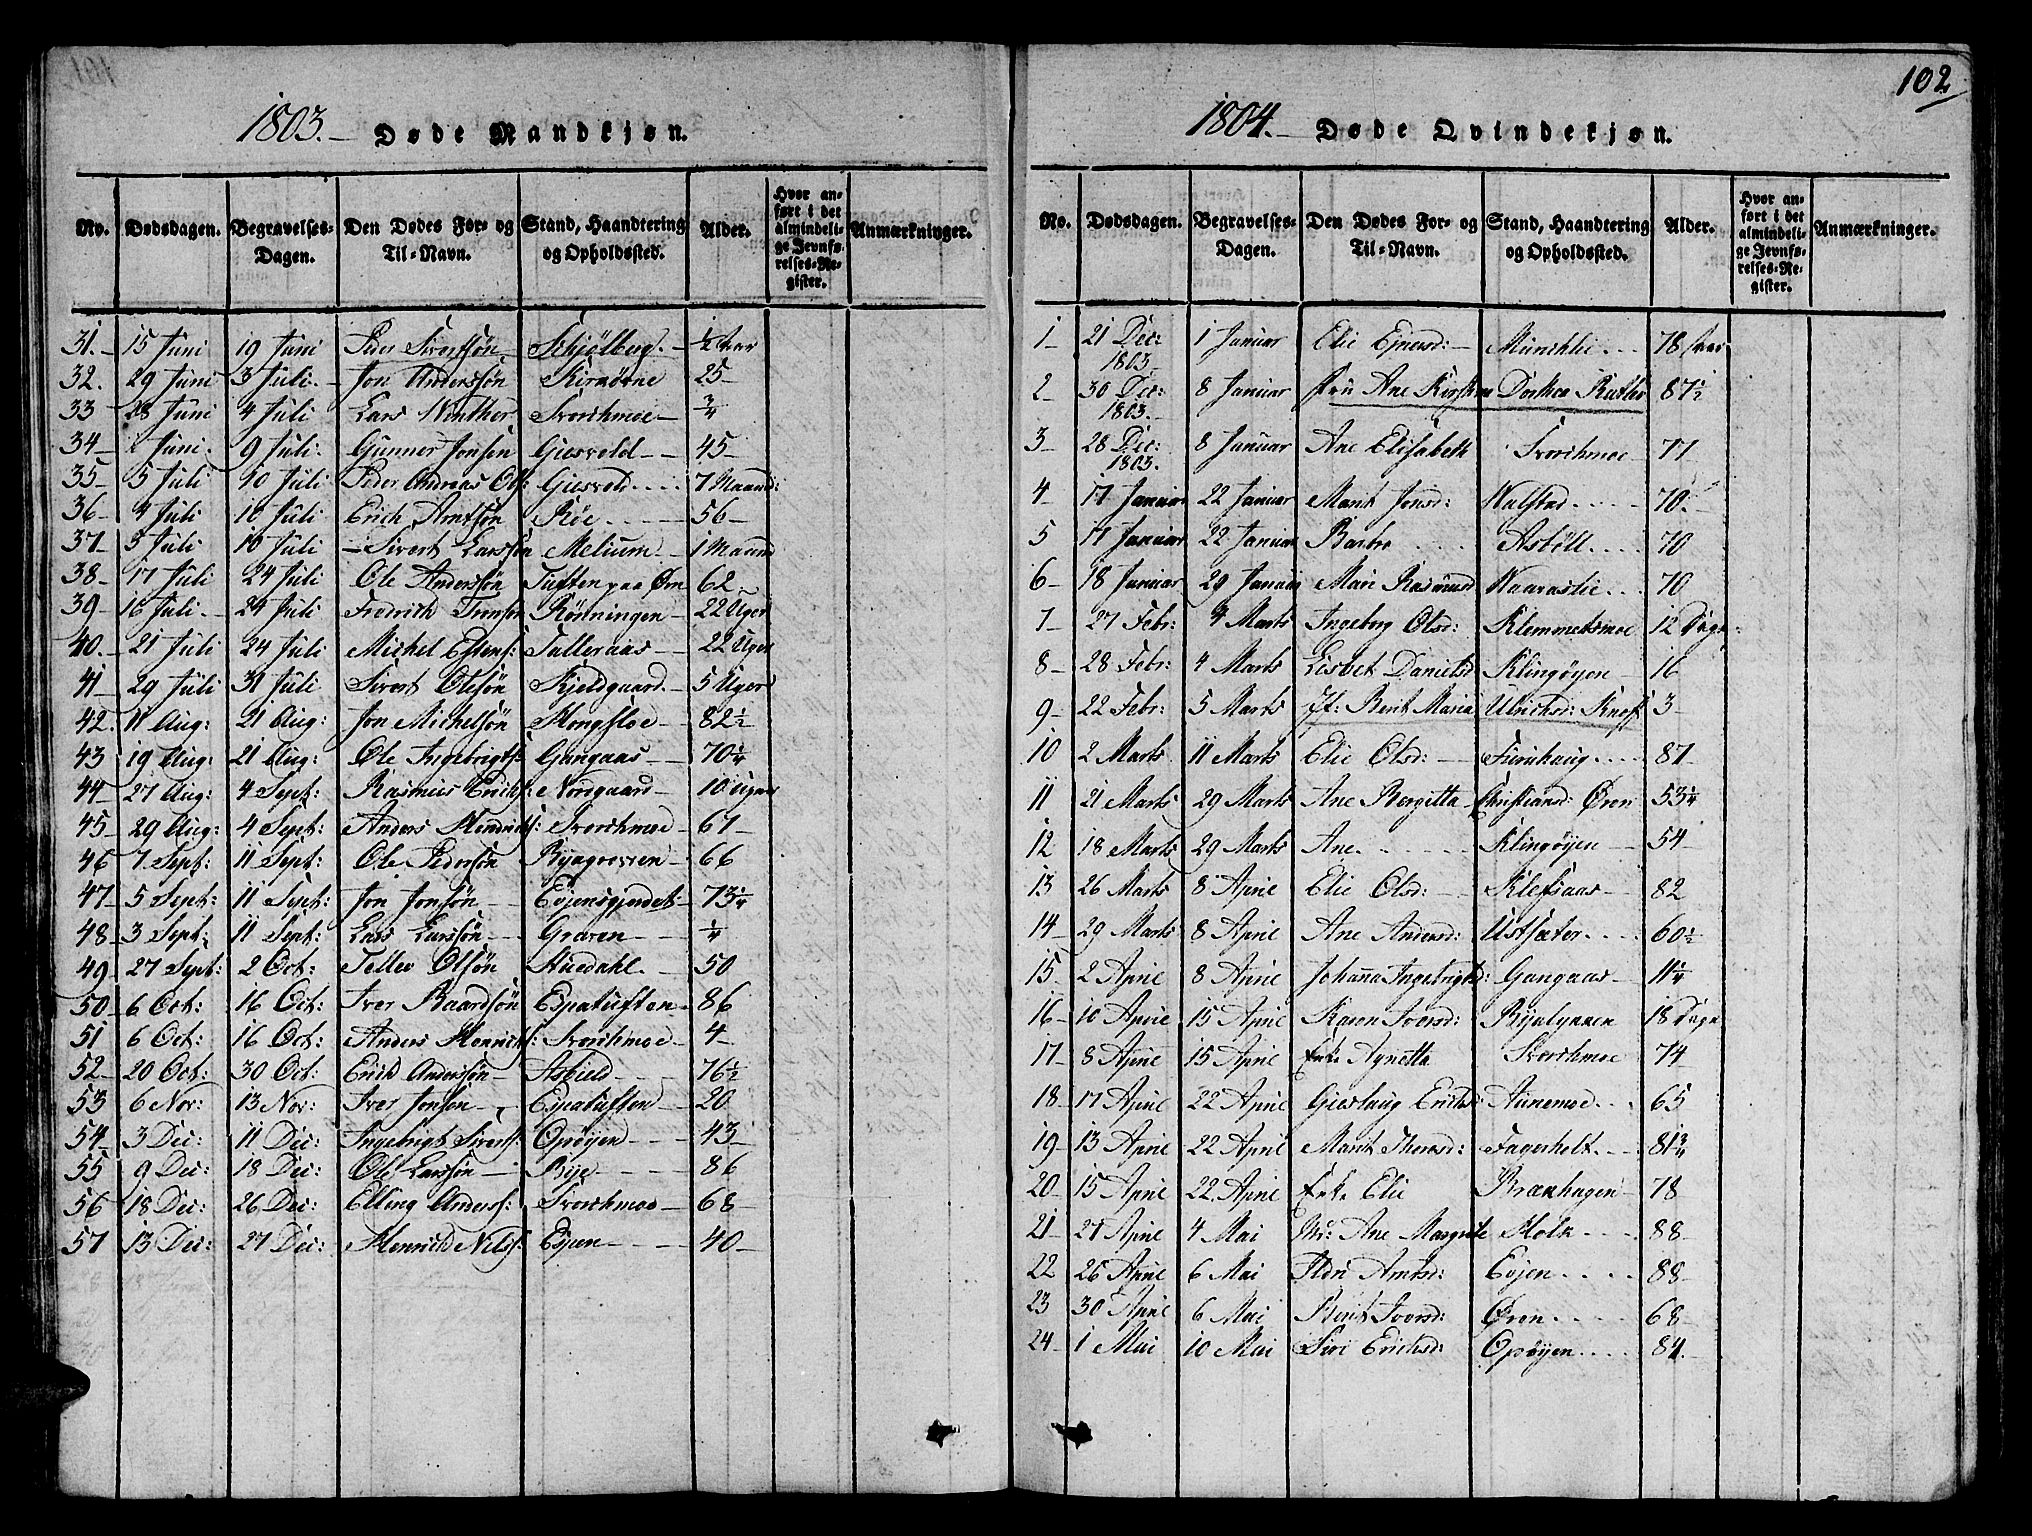 102
1803. Døde Mandkjøn.
No. Dødsdagen. Begravelses-Dagen. Den Dødes For- og Til-Navn. Stand, Haandtering og Opholdssted. Alder. Hvor anført i det almindelige Jevnførelses-Register. Anmærkninger.
31. 15 Juni 19 Juni Peder Sivertsøn Schjølberg. ½ Aar
32. 29 Juni 3 Juli. Jon Anderssøn 25
33 28 Juni 4 Juli Lars Winther Svorchmoe ¾
34 Juni. 9 Juli. Gunner Jonsøn Giesvold 45
35 5 Juli 10 Juli Peder Andreas Ols: Giesvold 7 Maand:
36 4 Juli 10 Juli Erich Arntsøn Røe 56
37 3 Juli 10 Juli Sivert Larssøn Melium 1 Maand
38 17 Juli 24 Juli Ole Anderssøn Tuften paa Ørn 62
39 16 Juli. 24 Juli Fredrich Rønningen 22 Uger
40. 21 Juli 24 Juli Michel Estens: Talleraas 22 Uger
41 29 Juli 31 Juli Sivert Olesøn Kjeldgaard 5 Uger
42. 11 Aug: 21 Aug: Jon Michelsøn Mongsloe 82½
43 19 Aug: 21 Aug: Ole Ingebrigts: Gangaas 70¼
44 27 Aug: 4 Sept: Rasmus Erichs: Nordgaard 10 Uger
45 29 Aug: 4 Sept: Anders Hendrichs: Svorchmoe 67
46 7 Sept: 11 Sept: Ole Pedersøn 66
47 5 Sept: 11 Sept: Jon Jonsøn Evjensgjerdet 73¼
48 3 Sept: 11 Sept: Lars Larssøn Graven ¼
49 27 Sept: 2 Oct: Tellev Olsøn 50
50 6 Oct: 16 Oct: Iver Baardsøn Espatuften 86
51 6 Oct: 16 Oct: Anders Henrichs: Svorchmoe 4
52 20 Oct: 30 Oct: Erich Andersøn Asbield 76½
53 6 Nov: 13 Nov: Iver Jonsøn Espatuften 20
54 3 Dec: 11 Dec: Ingebrigt Siverts: Opøyen 43
55 9 Dec: 18 Dec: Ole Larssøn Rye 86
56 18 Dec: 26 Dec: Elling Anders: Svorchmoe 68
57 13 Dec: 27 Dec: Henrich Nils: 40
1804. Døde Qvindekjøn.
No. Dødsdagen. Begravelses-Dagen. Den Dødes For- og Til-Navn. Stand, Haandtering og Opholdssted. Alder. Hvor anført i det almindelige Jevnførelses-Register. Anmærkninger.
1 21 Dec: 1803. 1 Januar Elie Ejnersd: 78 Aar
2 30 Dec: 1803. 8 Januar Fru Ane Kirstine Dorthea 87½
3 28 Dec: 1803. 8 Januar Ane Elisabeth Svorchmoe 77
4 17 Januar 22 Januar Marit Jonsd: Walstad 70
5 17 Januar 22 Januar Barbro Asbøll 70
6 18 Januar 29 Januar Mari Rasmusd Naavaslie 70
7 27 Febr: 4 Marts Ingeborg Olsd: Klemmetsmoe 12 Dage
8 28 Febr: 4 Marts Lisbet Danielsd Klingøyen 16
9 22 Febr: 5 Marts Jf: Berit Maria Ulrichsd: 3
10 2 Marts 11 Marts Elie Olsd: Furuhaug 87
11 21 Marts 29 Marts Ane Bergitta Christiansd: Øren 53¼
12 18 Marts 29 Marts Ane Klingøyen 54
13 26 Marts 8 April Elie Olsd: Klefsaas 82
14 29 Marts 8 April Ane Andersd: Ustsæter 60½
15 2 April 8 April Johanna Ingebrigtsd: Gangaas 11¼
16 10 April 15 April Karen Iversd: Ryelykken 18 Dage
17 8 April 15 April Enke Agnetta Svorchmoe 74
18 17 April 22 April Gieslaug Erichsd: Aunemoe 65
19 13 April 22 April Marit Thoresd: Fagerholt 81¾
20 15 April 22 April Enke Elie Brækhagen 78
21 27 April 4 Mai Ane Margrete Holk 88
22 26 April 6 Mai Ildri Arntsd: Evjen 88
23 30 April 6 Mai Berit Iversd: Øren 68
24 1 Mai 10 Mai Siri Erichsd: Opøyen 84